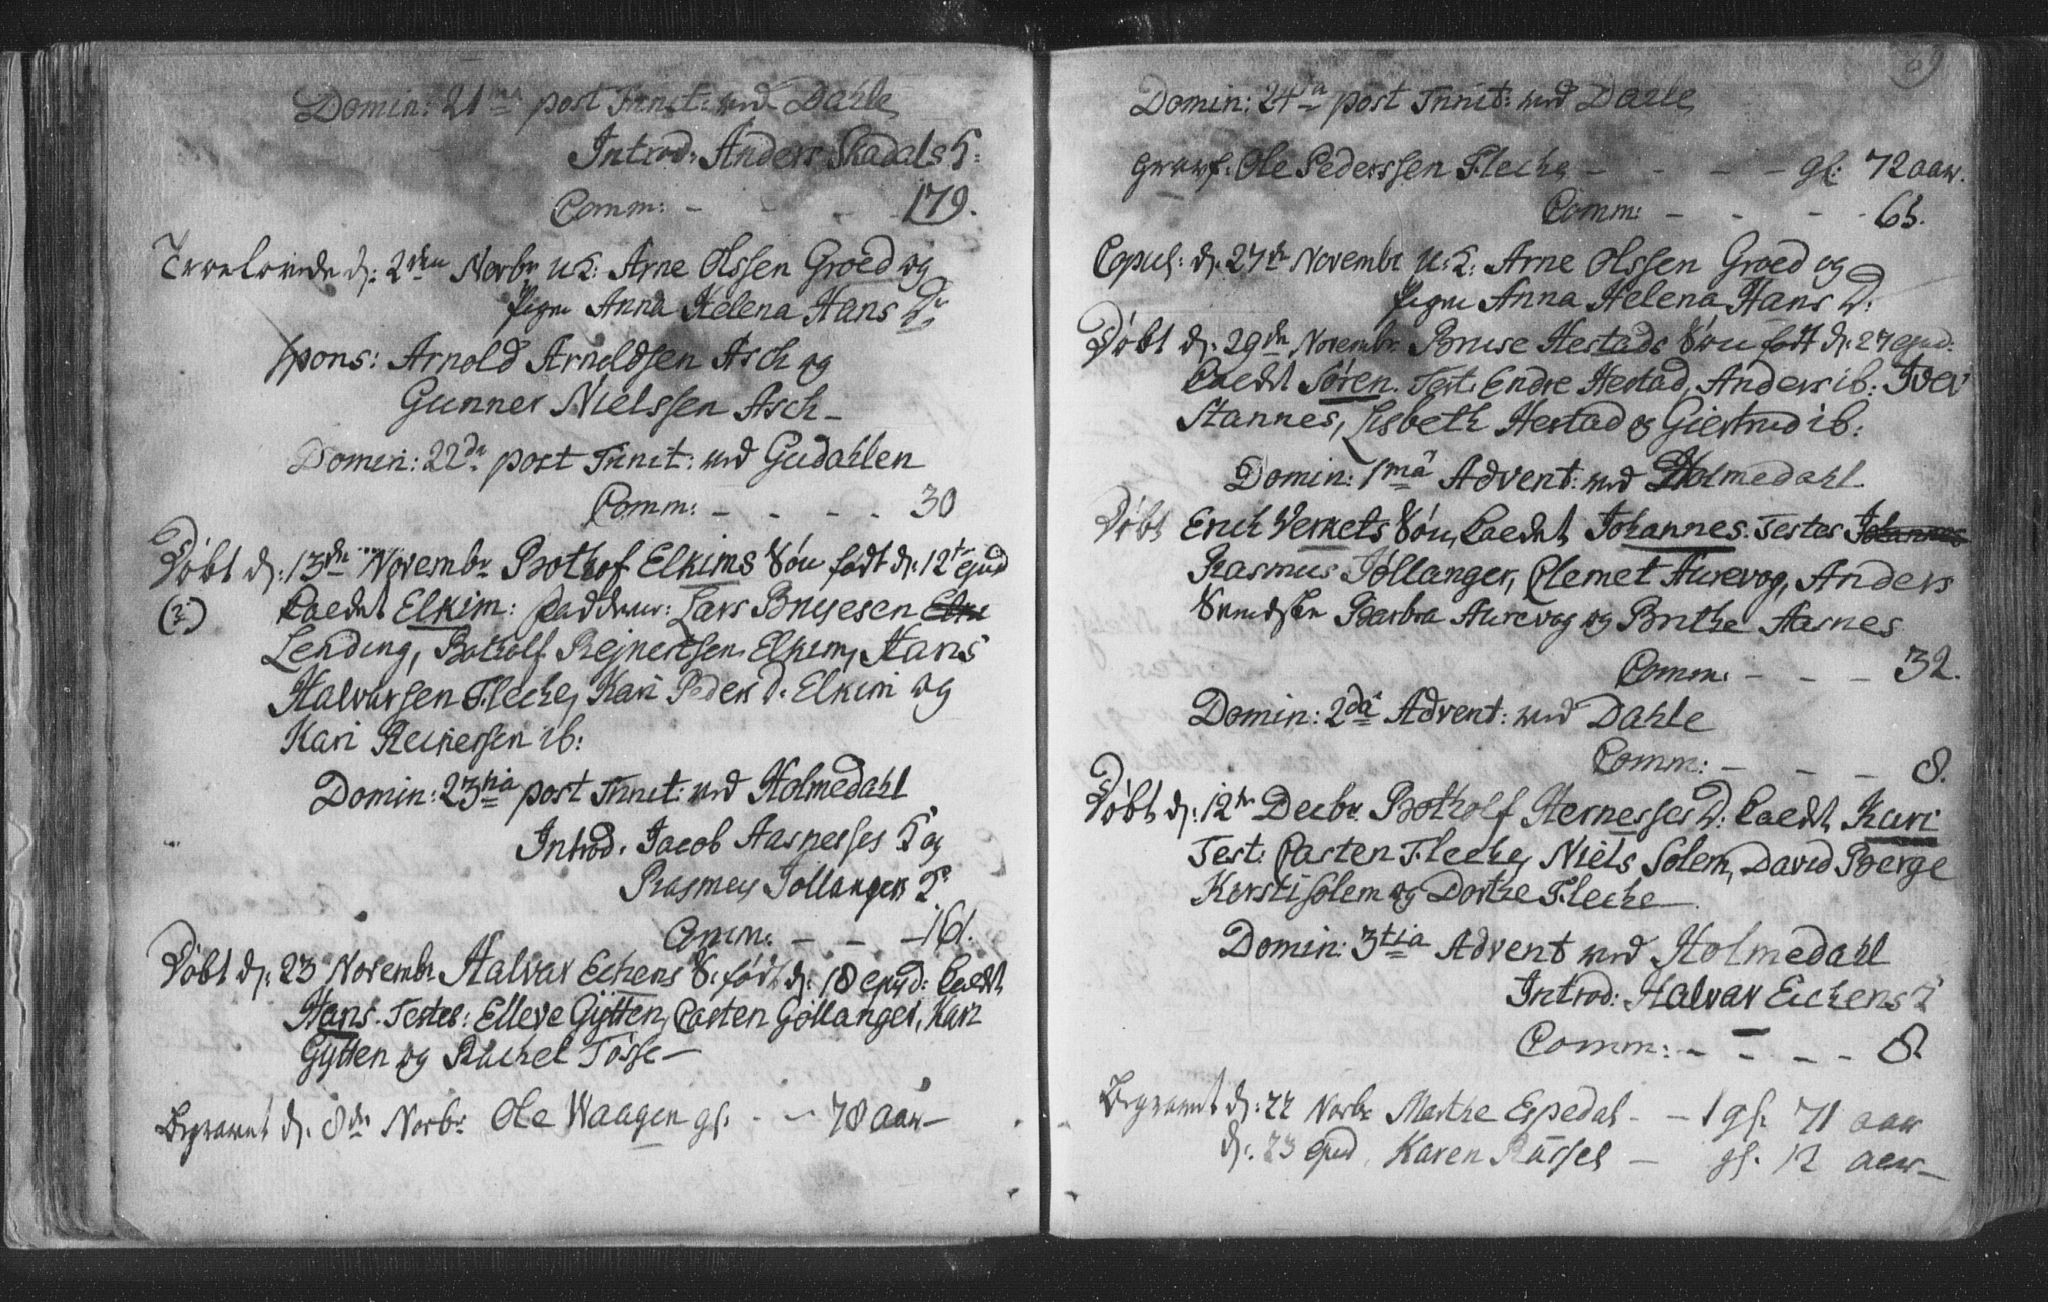 Domin: 21ma post Trinit: ved Dahle
Introd: Anders Skadals H:
Comm: - - - 179.
Trolovede d: 2den Novbr U.K: Arne Olssen Groed og
Pigen Anna Helena Hans Dr
spons: Arnold Arnoldsen Asch og
Gunner Nielssen Asch -
Domin: 22da post Trinit: ved Gudahlen
Comm: - - - - 30
Døbt d: 13de Novembr Botholf Elkims Søn født d: 12te ejud
(2) Kaldet Elkim: Faddere: Lars Bruesen
Lending, Botholf Rejnertsen Elkim, Hans
Halvarsen Flecke, Kari Peders d. Elkim og
Kari Reinersen ib:
Domin: 23tia post Trinit: ved Holmedahl
Introd. Jacob Aasnesses H og
Rasmus Tollangers H
Comm: - - -161.
Døbt d: 23 Novembr Halvar Echens S: født d: 18 ejud: Kaldt
Hans. Testes: Elleve Gytten, Carten Gollanger, Kari
Gytten og Rachel Tosse -
Begravet d. 8de Novbr. Ole Waagen gl. - - 78 aar -
Domin: 24ta post Trinit: ved Dahle
Begravet: Ole Pederssen Flecke - - - - gl: 72 aar.
Comm: - - - - 65.
Copul: d: 27de Novembr U:K: Arne Olssen Groed og
Pigen Anna Helena Hans D:
Døbt d: 29de Novembr Bruse Hestads Søn født d: 27 ejud:
Kaldet Søren. Test: Endre Hestad, Anders ib: Iver
Stannes, Lisbeth Hestad og Giertrud ib:
Domin: 1ma Advent: ved Holmedahl
Døbt Erich Vemets Søn, Kaldet Johannes. Testes Johannes
Rasmus Tollanger, Clemet Aurevog, Anders
Barbra Aurevog og Brithe Aasnes
Comm: - - - 32.
Domin: 2da Advent: ved Dahle
Comm: - - - 8.
Døbt d: 12te Decbr Botholf Hernesses D: Kaldt Kari
Test: Carten Flecke, Niels Solem, David Berge
Kirsti Solem og Dorthe Flecke -
Domin: 3tia Advent ved Holmedahl
Introd: Halvar Echens H
Comm: - - - - 8.
Begravet d: 22 Novbr Marthe Espedal - - gl: 71 aar
d: 23 ejud. Karen Russel - gl. 12 aar -